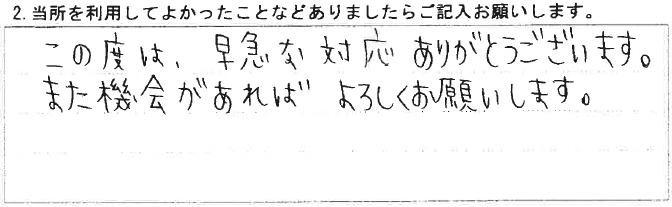 2. 当所を利用してよかったことなどありましたらご記入お願いします。
この度は、早急な対応ありがとうございます。
また機会があれば よろしくお願いします。